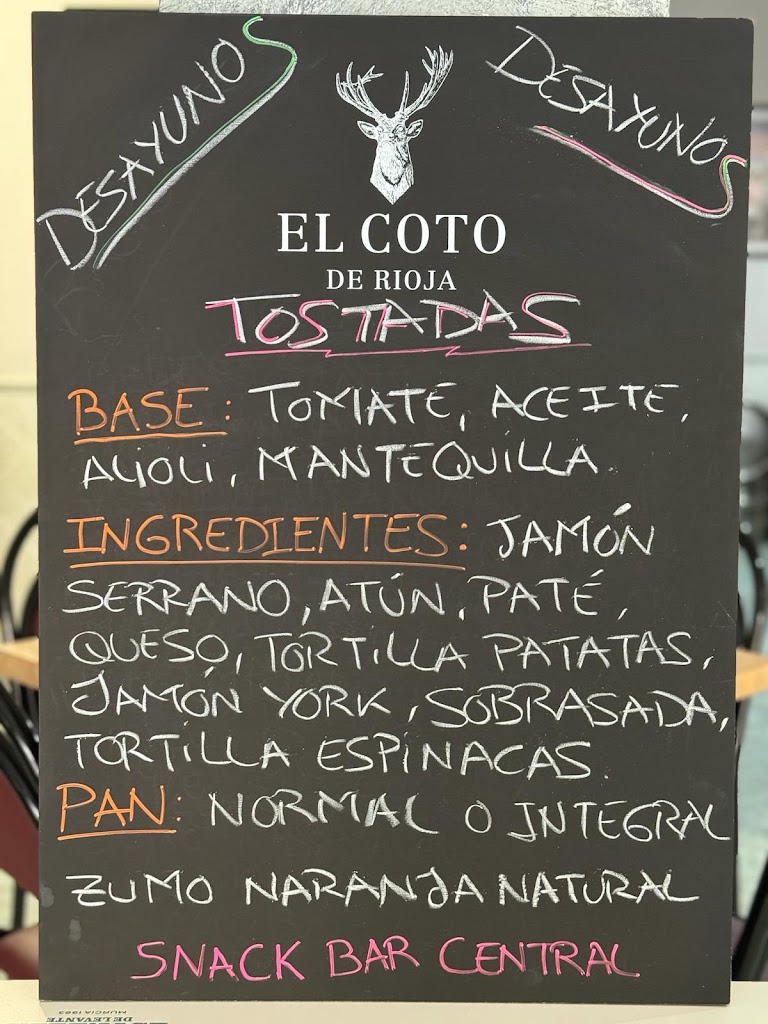 DESAYUNOS
DESAYUNOS
EL COTO
DE RIOJA
TOSTADAS
BASE: TOMATE, ACEITE,
ALIOLI, MANTEQUILLA.
INGREDIENTES: JAMÓN
SERRANO, ATÚN, PATÉ,
QUESO, TORTILLA PATATAS,
JAMÓN YORK, SOBRASADA,
TORTILLA ESPINACAS.
PAN: NORMAL O INTEGRAL
ZUMO NARANJA NATURAL
SNACK BAR CENTRAL
DE LEVANTE
MURCIA 1963